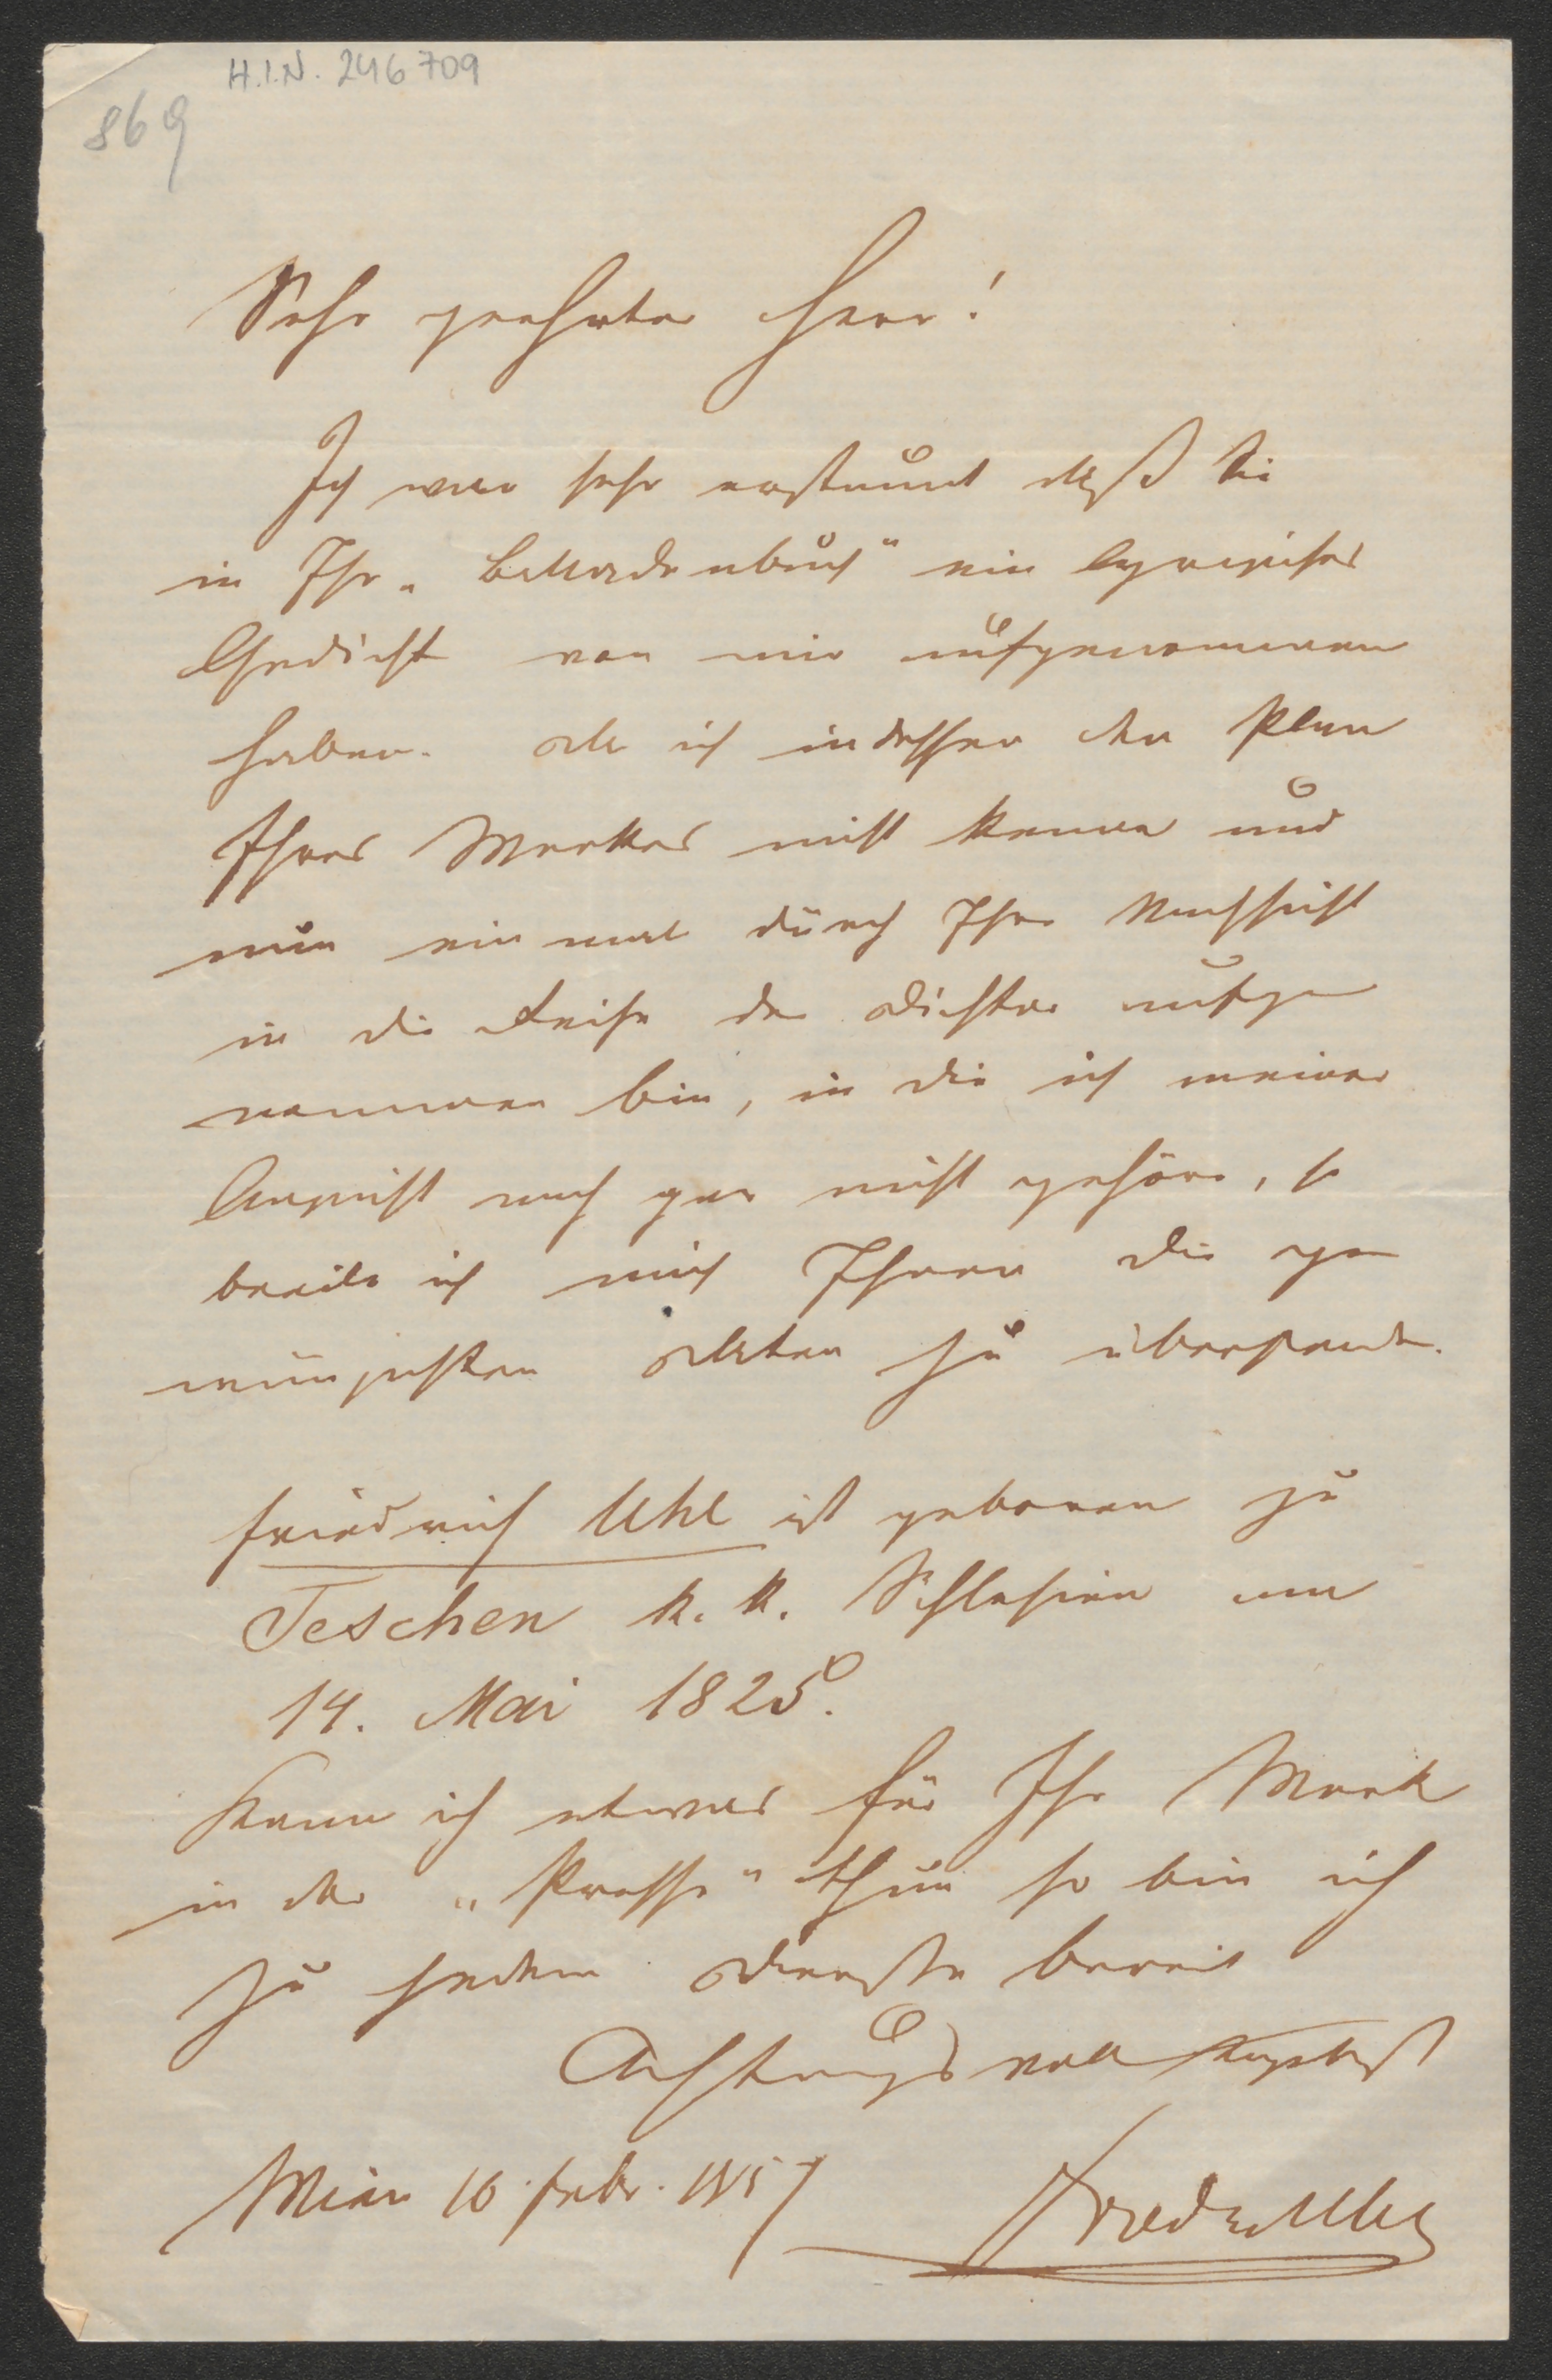 H.I.N. 246709
869
Sehr geehrter Herr!
Ich war sehr erstaunt daß Sie
in Ihr „Balladenbuch" ein lyrisches
Gedicht von mir aufgenommen
haben. Da ich indessen den Plan
Ihres Werkes nicht kenne und
nun einmal durch Ihre Nachsicht
in die Reihe der Dichter aufge
nommen bin, in die ich meiner
Ansicht nach gar nicht gehöre, so
beeile ich mich Ihnen die ge
wünschten Daten zu übersenden.
Friedrich Uhl ist geboren zu
Teschen k. k. Schlesien am
14. Mai 1825.
Kann ich etwas für Ihr Werk
in der „Presse" thun so bin ich
zu jedem Dienste bereit
Achtungsvoll ergebenst
Wien 16. Febr. 1857
Friedr. Uhl